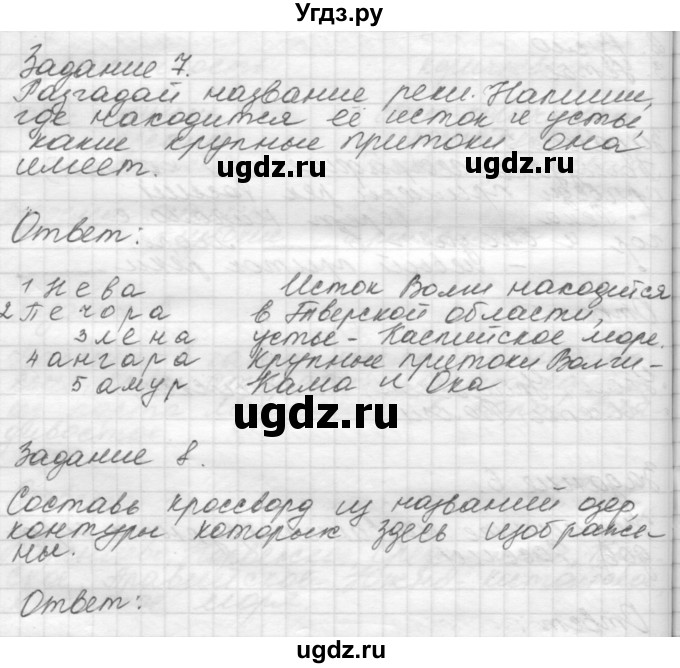 Угдз.ру
Задание 7.
Разгадай название реки. Напиши,
где находится её исток и устье,
какие крупные притоки она
имеет.
ugdz.ru ugdz.ru
Ответ:
1 Нева Исток Волги находится
2 Печора в Тверской области,
3 лена устье - Каспийское море.
4 ангара крупные притоки Волги -
5 амур Кама и Ока
ugdz.ru
Задание 8.
Составь кроссворд из названий озер,
контуры которых здесь изображе-
ны.
ugdz.ru
Ответ:
ugdz.ru